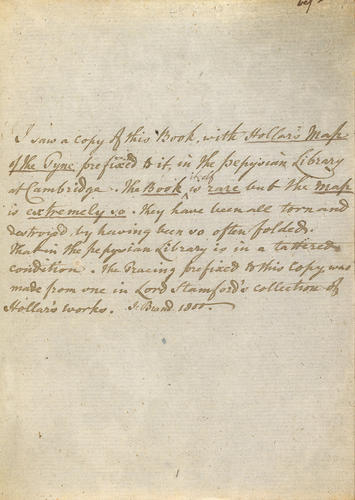 I saw a copy of this Book, with Hollar's Map
of the Tyne prefixed to it, in the Pepysian Library
at Cambridge. The Book itself is rare but the Map
is extremely so. They have been all torn and
destroyed by having been so often folded.
That in the pepysian Library is in a tattered
condition. The Tracing prefixed to this Copy was
made from one in Lord Stamford's collection of
Hollar's works. J. Brand. 1800.